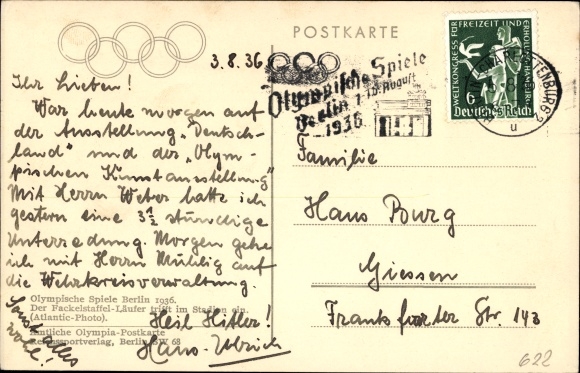 POSTKARTE
3.8.36.
Ihr Lieben!
War heute morgen auf
der Ausstellung "Deutsch-
land" und der "Olym-
pischen Kunstausstellung"
Mit Herrn Weber hatte ich
gestern eine 3½ stündige
Unterredung. Morgen gehe
ich mit Herrn Mühlig auf
die Wehrkreisverwaltung.
Heil Hitler!
Hans-Ulrich
Sonst alles
wohl!
Olympische Spiele Berlin 1936.
Der Fackelstaffel-Läufer trifft im Stadion ein.
(Atlantic-Photo).
Amtliche Olympia-Postkarte
Reichssportverlag, Berlin SW 68
Olympische Spiele
Berlin 1.-16. August
1936
WELTKONGRESS FÜR FREIZEIT UND ERHOLUNG HAMBURG
6
Deutsches Reich
u
Familie
Hans Burg
Giessen
Frankfurter Str. 143
622